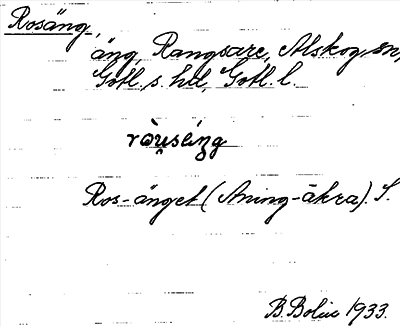 Rosäng,
äng, Rangsare, Alskog sn,
Gotl. s. hd, Gotl. l.
ròu̯séiŋg
Ros-änget (Aning-åkra). S.
B. Bolin 1933.